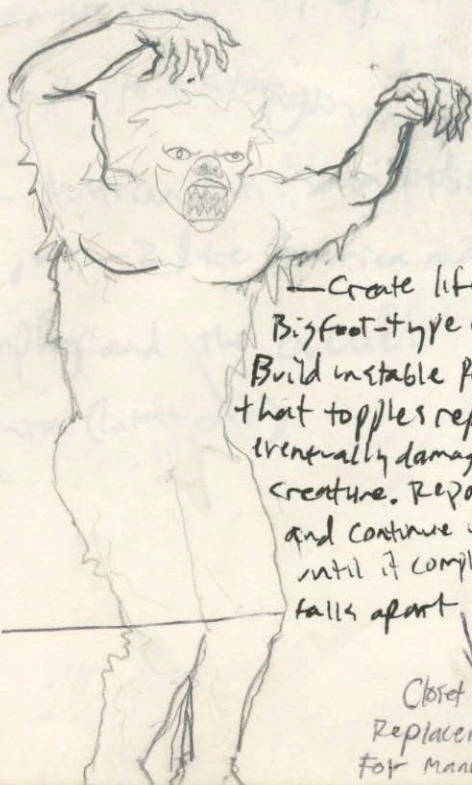 — Create lif
Bigfoot-type
Build instable P
that topples rep
eventually damag
creature. Repa
and continue
until it compl
falls apart
Closet
Replacem
For Mann